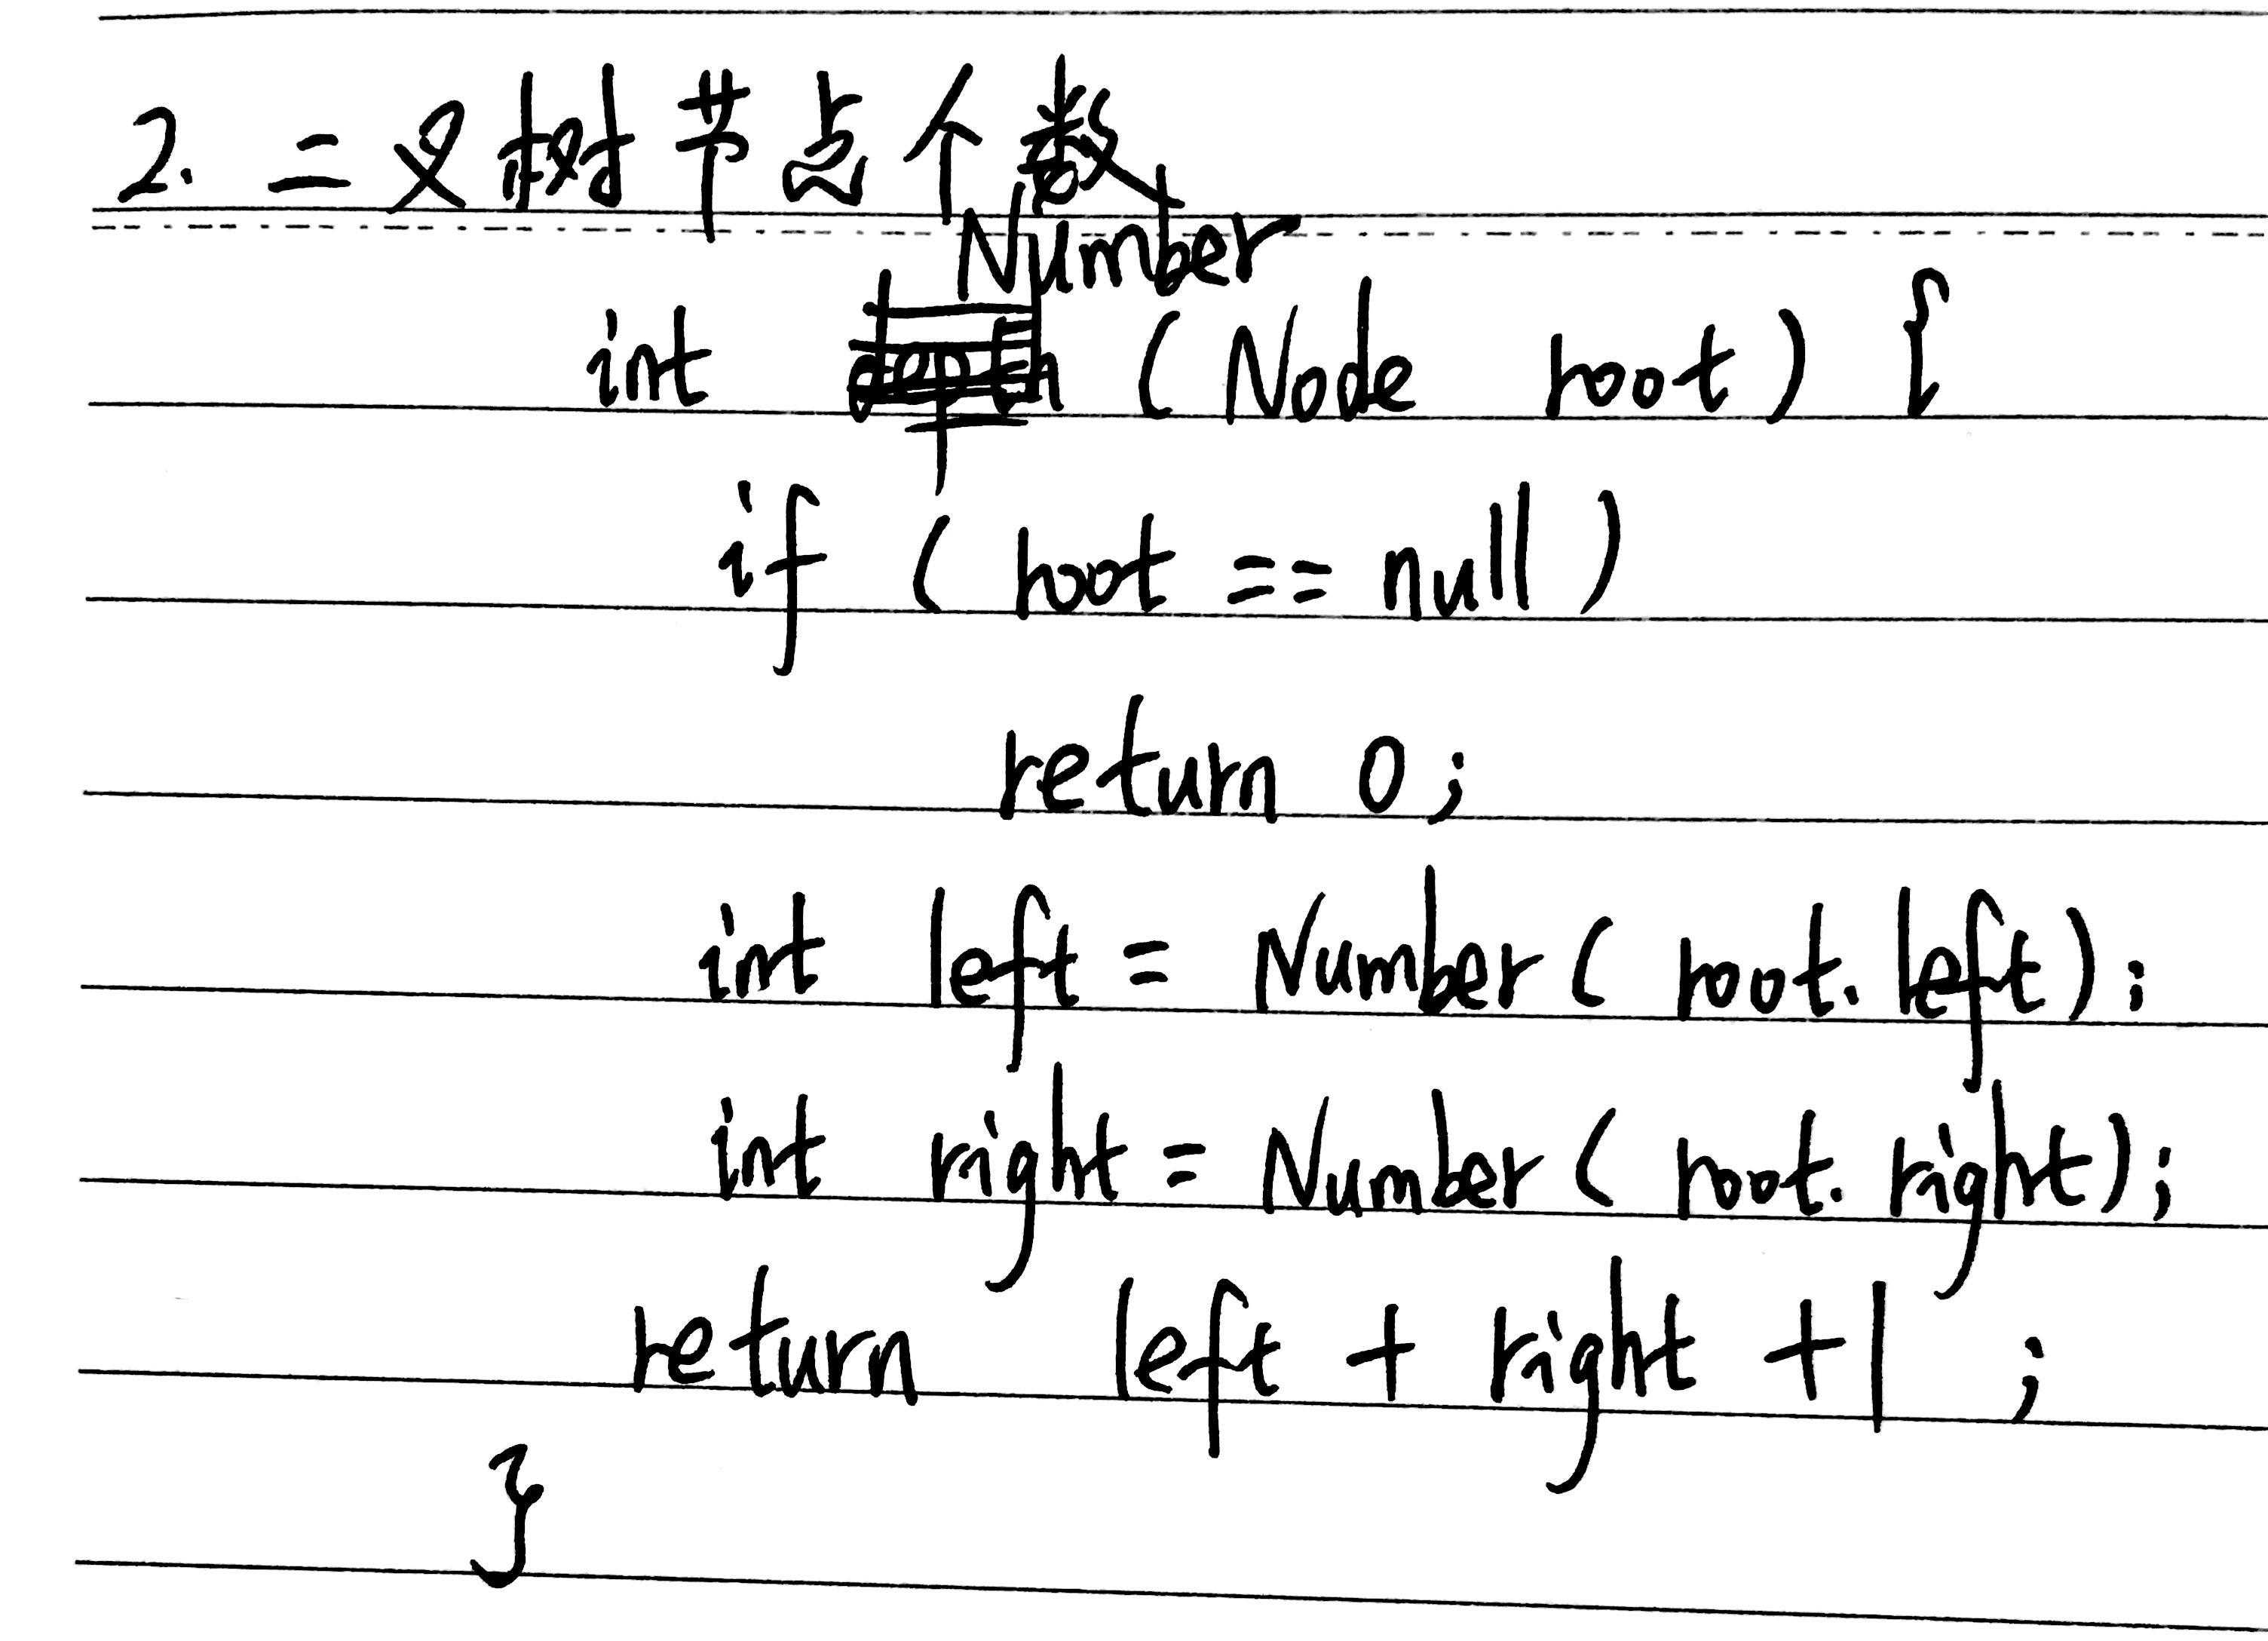 2. 二叉树节点个数
Number
int depth (Node root) {
if ( root == null )
return 0;
int left = Number( root. left);
int right = Number( root. right);
return left + right +1 ;
}